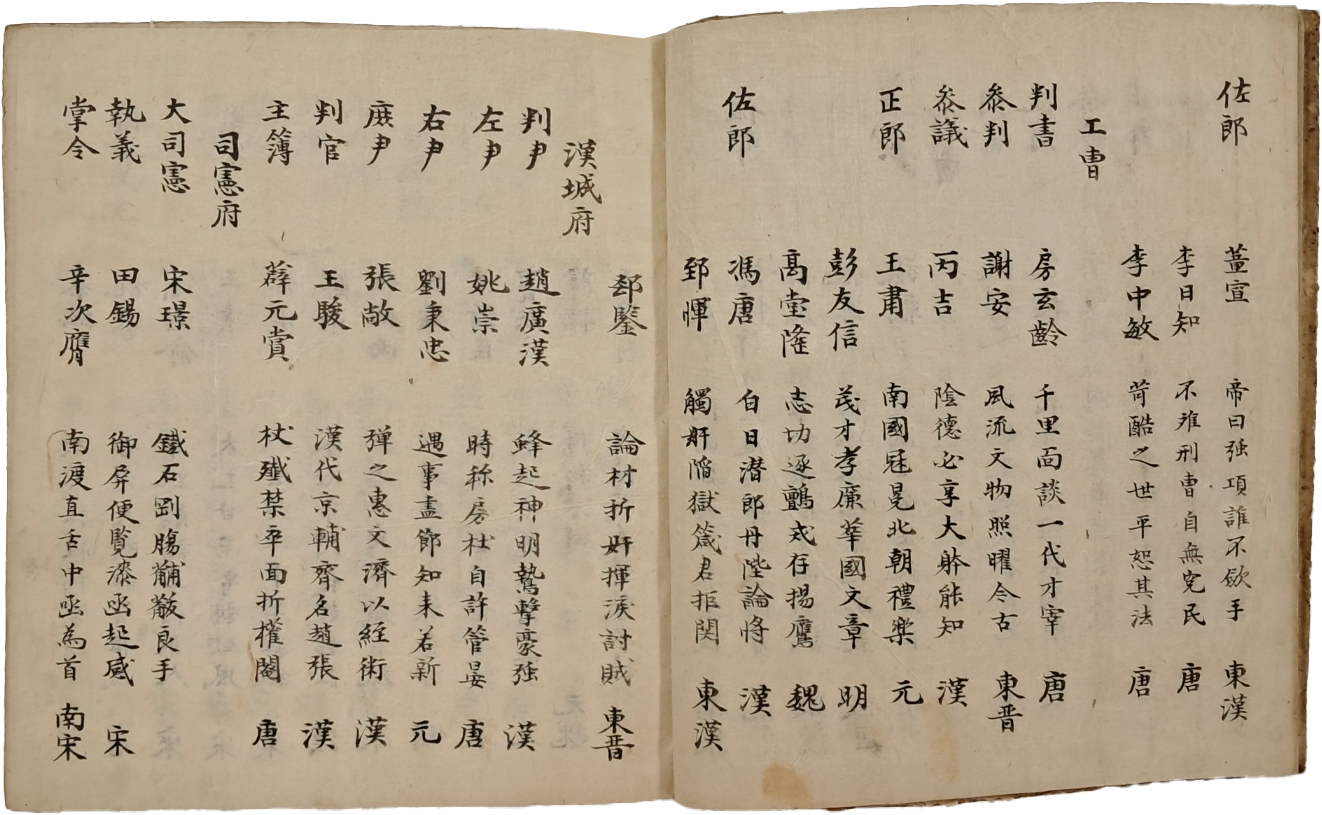 佐郎 董宣 帝曰强項誰不欲手 東漢
李日知 不难刑曹自無寃民 唐
李中敏 苛酷之世平恕其法 唐
工曹
判書 房玄齡 千里面談一代才宰 唐
叅判 謝安 風流文物照曜今古 東晋
叅議 丙吉 陰德必享大躰能知 漢
正郎 王肅 南國冠冕北朝禮樂 元
彭友信 茂才孝廉華國文章 明
高堂隆 志切逐鸇戒存揚鷹 魏
佐郎 馮唐 白日潜郎丹陛論将 漢
郅惲 觸奸陷獄箴君拒関 東漢
郄鑒 論材折奸揮淚討賊 東晋
漢城府
判尹 趙廣漢 蜂起神明鷙擊豪强 漢
左尹 姚崇 時称房杜自許管晏 唐
右尹 劉秉忠 遇事盡節知未若新 元
庶尹 張敞 殫之惠文濟以経術 漢
判官 王駿 漢代京輔齊名趙張 漢
主簿 薛元賞 杖殱禁卒面折權閹 唐
司憲府
大司憲 宋璟 鐵石剛膓黼黻良手
執義 田錫 御屏便覧漆凾起感 宋
掌令 辛次膺 南渡直舌中丞為首 南宋